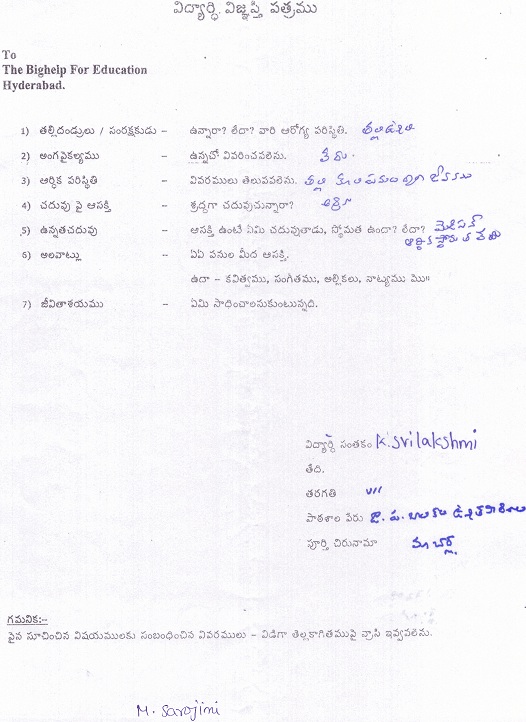 విద్యార్ధి విజ్ఞప్తి పత్రము
To
The Bighelp For Education
Hyderabad.
1) తల్లిదండ్రులు / సంరక్షకుడు – ఉన్నారా? లేదా? వారి ఆరోగ్య పరిస్థితి.
2) అంగవైకల్యము – ఉన్నచో వివరించవలెను. లేదు.
3) ఆర్ధిక పరిస్థితి – వివరములు తెలుపవలెను. తల్లి కూలి పనుల ద్వారా జీవనము
4) చదువు పై ఆసక్తి – శ్రద్ధగా చదువుచున్నారా?
5) ఉన్నతచదువు – ఆసక్తి ఉంటే ఏమి చదువుతాడు, స్థోమత ఉందా? లేదా?
6) అలవాట్లు – ఏఏ పనుల మీద ఆసక్తి.
ఉదా – కవిత్వము, సంగీతము, అల్లికలు, నాట్యము మొ॥
7) జీవితాశయము – ఏమి సాధించాలనుకుంటున్నది.
విద్యార్ధి సంతకం K. Srilakshmi
తేది.
తరగతి VII
పాఠశాల పేరు జి. ప. బాలికల ఉన్నత పాఠశాల
పూర్తి చిరునామా
గమనిక:-
పైన సూచించిన విషయములకు సంబంధించిన వివరములు – విడిగా తెల్లకాగితముపై వ్రాసి ఇవ్వవలెను.
M. Sarojini